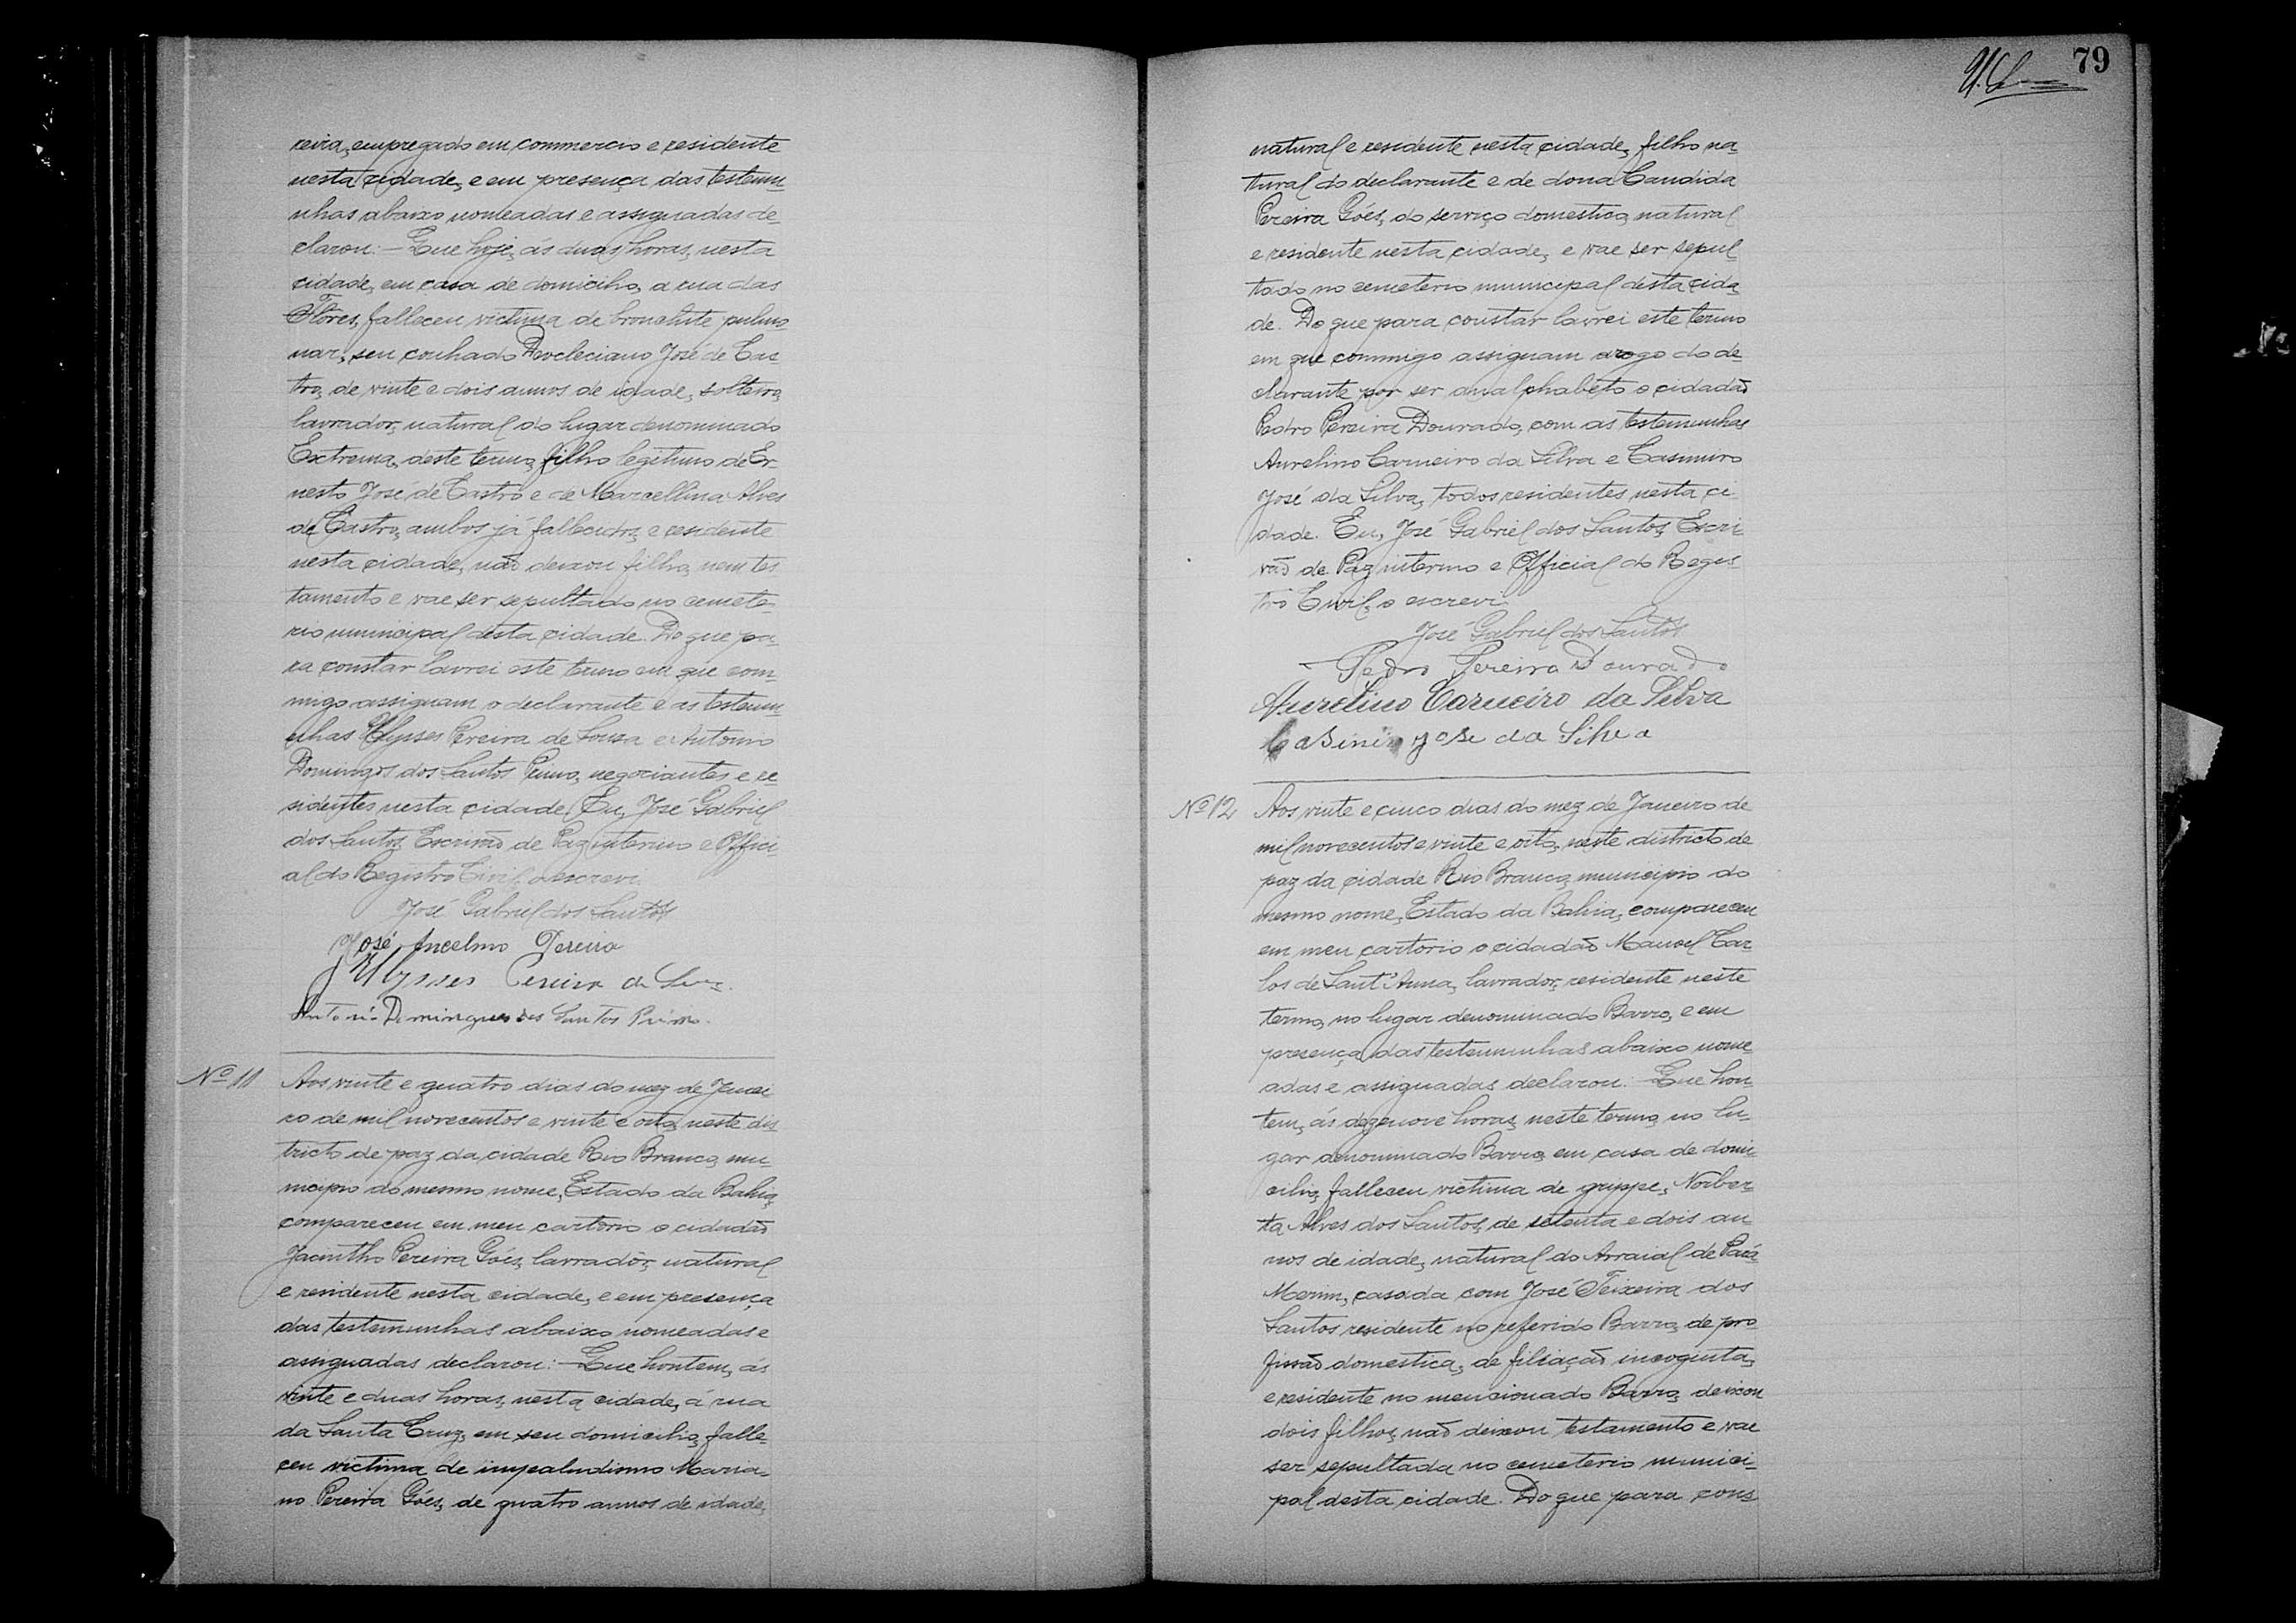 reira, empregado em commercio e residente
nesta cidade, e em presença das testemu-
nhas abaixo nomeadas e assignadas de-
clarou: - Que hoje, ás duas horas, nesta
cidade, em casa de domicilio, a rua das
Flôres, falleceu victima de bronchite pulmo-
nar, seu cunhado Deocleciano José de Cas-
tro, de vinte e dois annos de idade, solteiro,
lavrador, natural do lugar denominado
Extrema, deste termo, filho legitimo de Er-
nesto José de Castro e de Marcellina Alves
de Castro, ambos já fallecidos, e residente
nesta cidade, não deixou filho, nem tes-
tamento e vae ser sepultado no cemete-
rio municipal desta cidade. Do que pa-
ra constar lavrei este termo em que com-
migo assignam o declarante e as testemu-
nhas Ulysses Pereira de Souza e Antonio
Domingos dos Santos Primo, negociantes e re-
sidentes nesta cidade. Eu, José Gabriel
dos Santos, Escrivão de Paz interino e Offici-
al do Registro Civil, o escrevi.
José Gabriel dos Santos
José Ancelmo Pereira
Ulysses Pereira de Souza
Antonio Domingues dos Santos Primo.
Nº 11 Aos vinte e quatro dias do mez de Janei-
ro de mil novecentos e vinte e oito, neste dis-
tricto de paz da cidade Rio Branco, mu-
nicipio do mesmo nome, Estado da Bahia,
compareceu em meu cartorio o cidadão
Jacintho Pereira Góes, lavradôr, natural
e residente nesta cidade, e em presença
das testemunhas abaixo nomeadas e
assignadas declarou: - Que hontem, ás
vinte e duas horas, nesta cidade, á rua
da Santa Cruz, em seu domicilio, falle-
ceu victima de impaludismo Maria-
no Pereira Góes, de quatro annos de idade,
79
natural e residente nesta cidade, filho na-
tural do declarante e de dona Candida
Pereira Góes, do serviço domestico, natural
e residente nesta cidade, e vae ser sepul-
tado no cemeterio municipal desta cida-
de. Do que para constar lavrei este termo
em que commigo assignam arogo do de-
clarante por ser analphabeto o cidadão
Pedro Pereira Dourado, com as testemunhas
Aurelino Carneiro da Silva e Casimiro
José da Silva, todos residentes nesta ci-
dade. Eu, José Gabriel dos Santos, Escri-
vão de Paz interino e Official do Regis-
tro Civil, o escrevi.
José Gabriel dos Santos
Pedro Pereira Dourado
Aurelino Carneiro da Silva
Casimiro jose da Silva
Nº 12 Aos vinte e cinco dias do mez de Janeiro de
mil novecentos e vinte e oito, neste districto de
paz da cidade Rio Branco, municipio do
mesmo nome, Estado da Bahia, compareceu
em meu cartorio o cidadão Manoel Car-
los de Sant'Anna, lavrador, residente neste
termo, no lugar denominado Barro, e em
presença das testemunhas abaixo nome-
adas e assignadas declarou: - Que hon-
tem, ás dezenove horas, neste termo, no lu-
gar denominado Barro, em casa de domi-
cilio, falleceu victima de grippe, Norber-
ta Alves dos Santos, de setenta e dois an-
nos de idade, natural do Arraial de Pará-
Merim, casada com José Teixeira dos
Santos residente no referido Barro, de pro-
fissão domestica, de filiação incognita,
e residente no mencionado Barro, deixou
dois filhos, não deixou testamento e vae
ser sepultada no cemeterio munici-
pal desta cidade. Do que para cons-